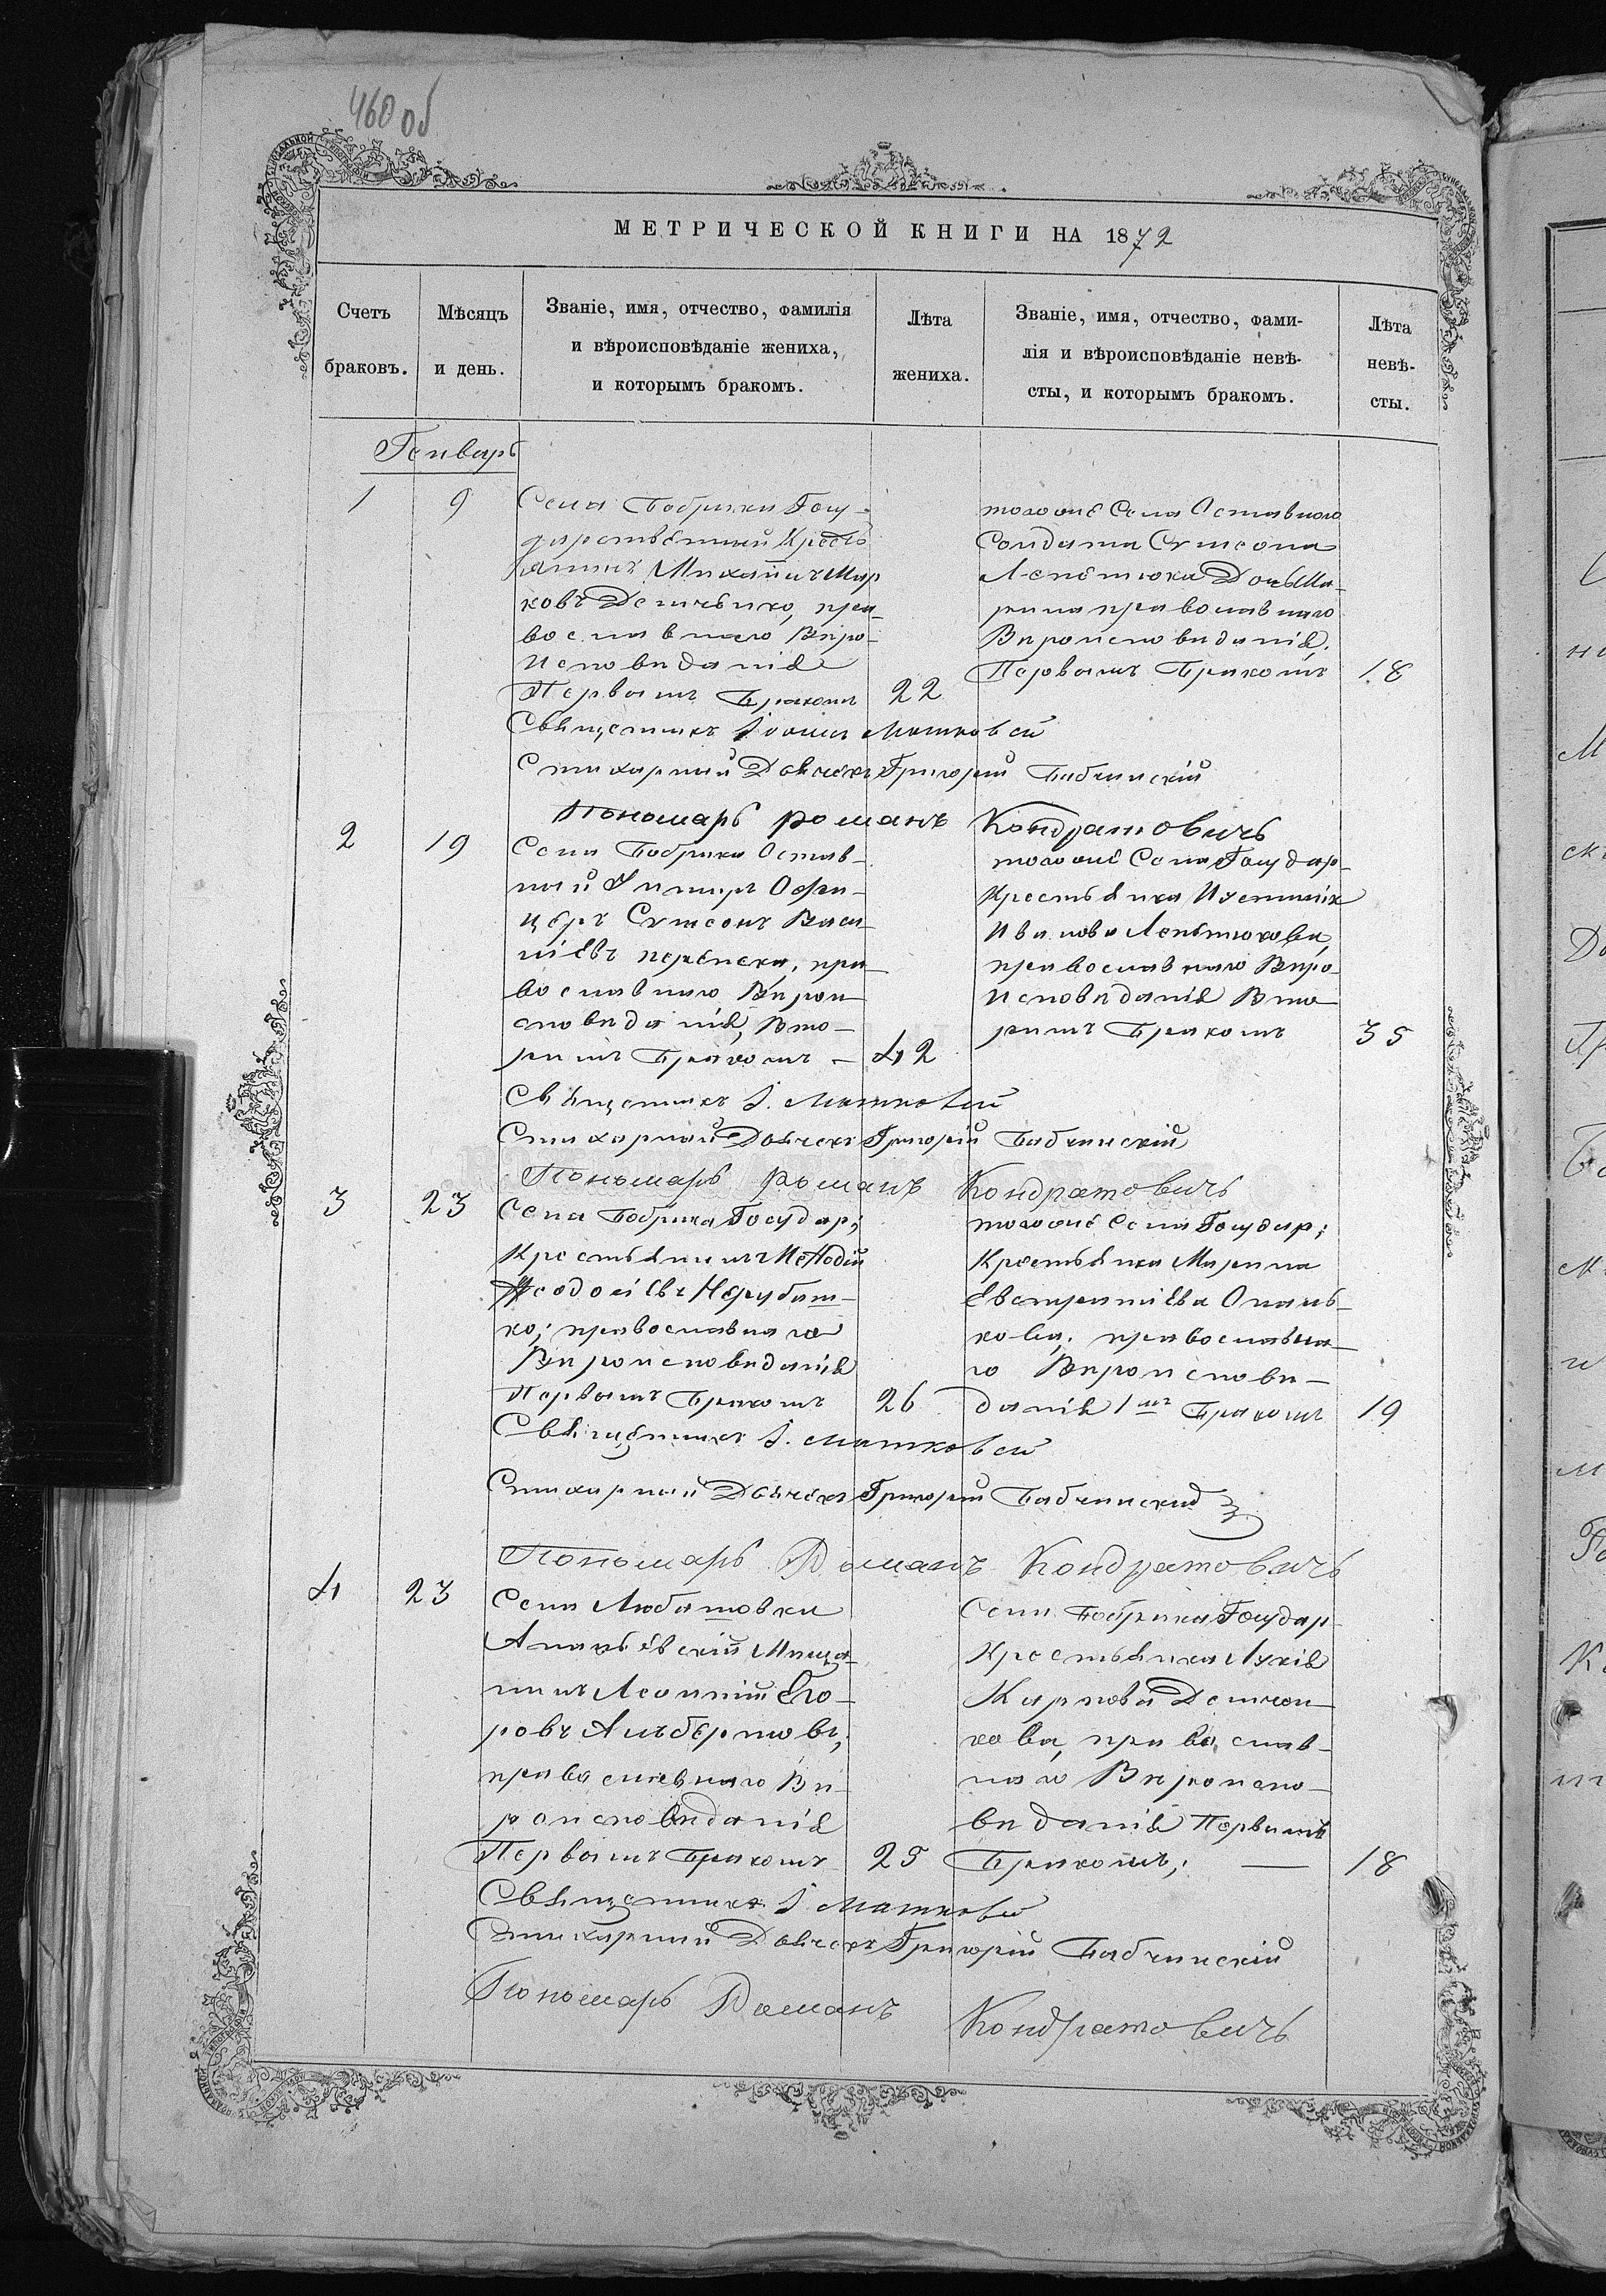 460 об
МЕТРИЧЕСКОЙ КНИГИ НА 1872
Счетъ браковъ.
Мѣсяцъ и день.
Званіе, имя, отчество, фамилія
и вѣроисповѣданіе жениха,
и которымъ бракомъ.
Лѣта жениха.
Званіе, имя, отчество, фами-
лія и вѣроисповѣданіе невѣ-
сты, и которымъ бракомъ.
Лѣта невѣ-
сты.
Генварь
1 9
Села Бобрика Госу-
дарственный Кресть
янинъ Михаилъ Мар
ковъ Демченко, пра-
вославнаго Виро-
исповиданія
Первымъ Бракомъ 22
тогоже Села Отставного
Солдата Сумеона
Дочь Ма-
рина православнаго
Вироисповиданія,
Первымъ Бракомъ 18
Священникъ Іоаннъ Матковскій
Стихарный Дьячекъ Григорій Бабчинскій
Пономарь Романъ Кондратовичъ
2 19
Села Бобрика Отстав-
ный Унтеръ Офи-
церъ Сумеонъ Васи
ліевъ, пра-
вославнаго Вирои-
споведанія, Вто-
римъ Бракомъ - 42
тогоже Села Государ-
Крестьянка Иустинія
Иванова,
православнаго Виро-
исповиданія Вто-
римъ Бракомъ 35
Священникъ І. Матковскій
Стихарный Дьячекъ Григорій Бабчинскій
Пономарь Романъ Кондратовичъ
3 23
Села Бобрика Государ;
Крестьянинъ Меѳодій
Нерубат-
ко; православнаго
Вироисповиданія
Первымъ Бракомъ 26
тогоже Села Государ;
Крестьянка Марина
Евстратіева Опаль-
кова; православна-
го Вироиспови-
данія 1мъ Бракомъ 19
Священникъ І. Матковскій
Стихарный Дьячекъ Григорій Бабчинскій
Пономарь Романъ Кондратовичъ
4 23
Села Любатовки
Ананьевскій Мища-
нинъ Леонтій Его-
ровъ Альбертовъ,
православнаго Ви-
роисповиданія
Первымъ Бракомъ 25
Села Бобрика Государ
Крестьянка Лукія
Карпова Демчен-
кова, православ-
наго Вироиспо-
виданія Первымъ
Бракомъ; — 18
Священникъ І. Матковскій
Стихарный Дьячекъ Григорій Бабчинскій
Пономарь Романъ Кондратовичъ